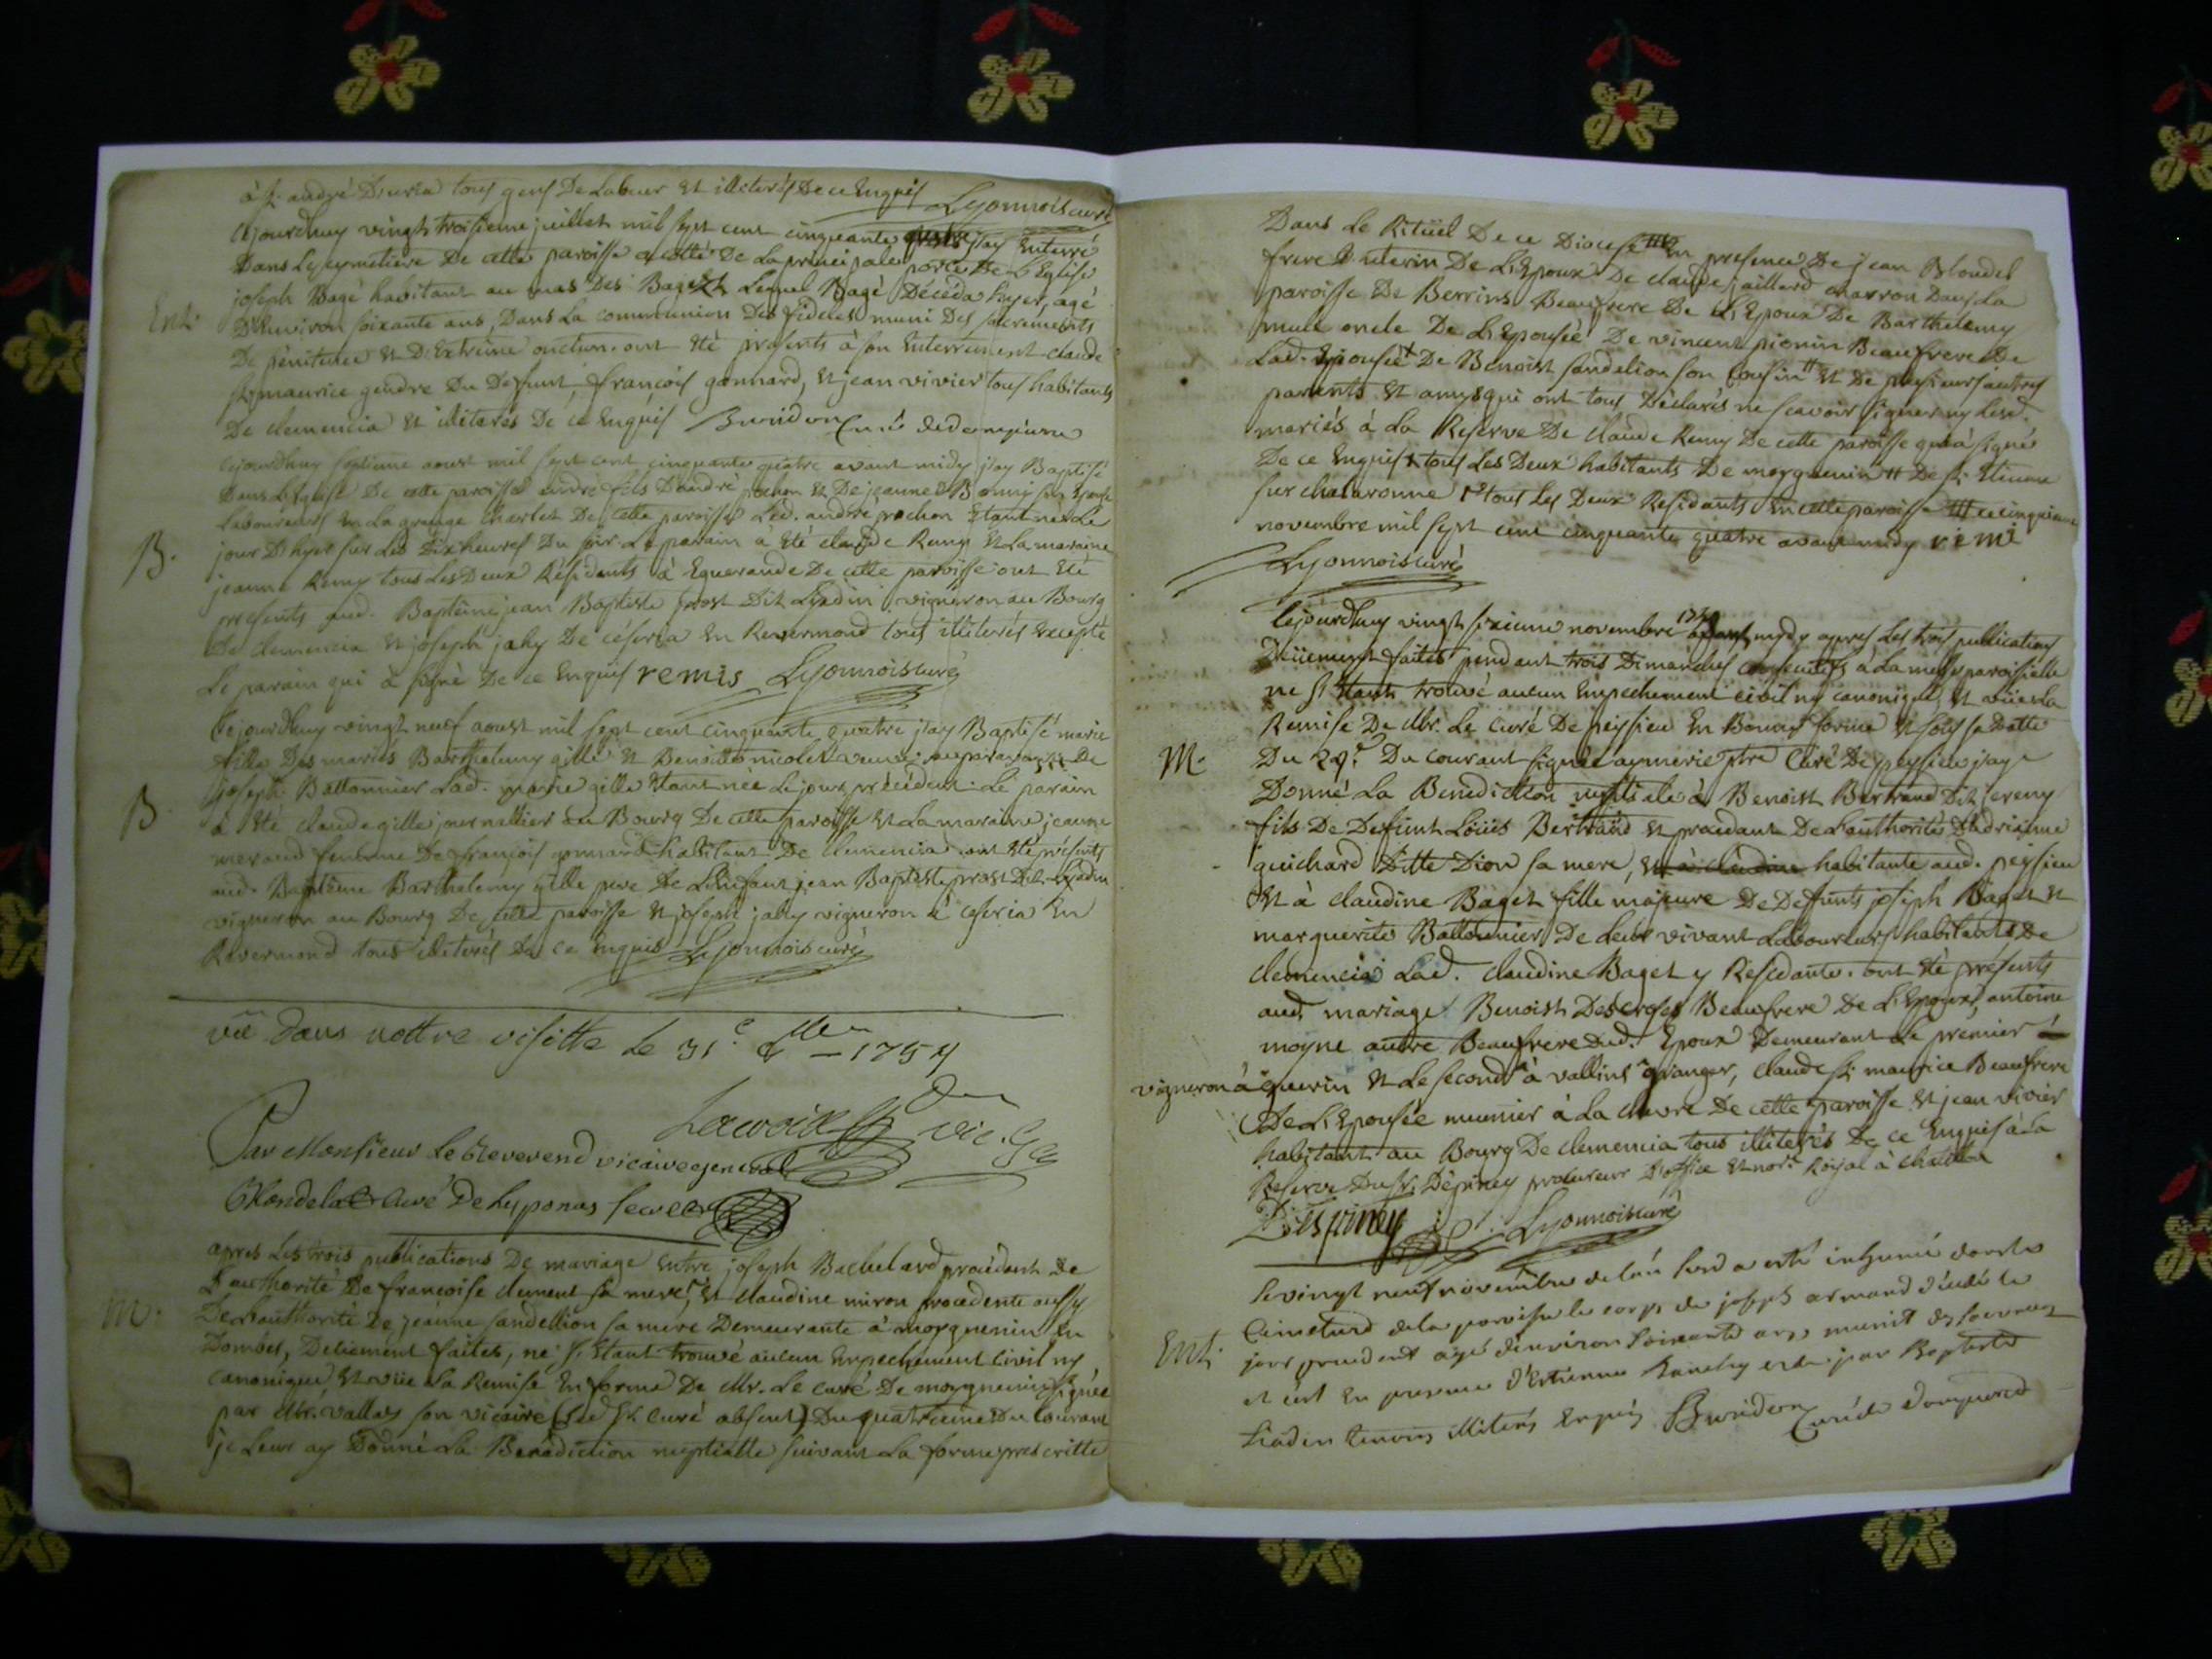 à St. andré D'uria tous gens De Labeur Et illiterés De ce Enquis Lyonnois curé
Cejourdhuy vingt troisieme juillet mil sept cent cinquante quatre jay Enterré
Dans Le cymetiere De cette paroisse a cotté De La principale porte De L'Eglise
joseph Bagé habitant au mas Des Baget Lequel Bagé Décéda hyer, agé
Ent. D'Environ soixante ans, Dans La communion Des fideles muni Des sacrements
De pénitence Et D'Extreme onction. ont Eté presents à son Enterrement claude
St. maurice gendre Du Defunt, françois gonnard, Et jean vivier tous habitants
De clemencia Et illiterés De ce Enquis Buridon Curé de dompierre
Cejourdhuy septieme aoust mil sept cent cinquante quatre avant midy jay Baptisé
Dans L'Eglise De cette paroisse andré fils D'andré prochon Et De jeanne Bonni son Epouse
Laboureurs En La grange Charlet De cette paroisse Led. andré prochon Etant né Le
B. jour D'hyer sur Les Dix heures Du soir. Le parain a Eté claude Remy Et La maraine
jeanne Remy tous Les Deux Résidents à Eguerande De cette paroisse ont Eté
presents aud. Baptême jean Baptiste prost Dit Liadin vigneron au Bourg
De clemencia Et joseph jahy De céseria En Revermond tous illiterés Excepté
Le parain qui à signé De ce Enquis remis Lyonnois curé
Cejourdhuy vingt neuf aoust mil sept cent cinquante quatre jay Baptisé marie
fille Des mariés Barthelemy gille Et Benoitte nicolet veuve auparavant De
joseph Battonnier Lad. marie gille Etant née Le jour précédent. Le parain
B à Eté claude gille journallier au Bourg De cette paroisse Et La maraine jeanne
meraud femme De françois gonnard habitant De clemencia. ont Eté présents
aud. Baptême Barthelemy gille pere De L'Enfant, jean Baptiste prost Dit Liadin
vigneron au Bourg De cette paroisse Et joseph jahy vigneron à ceseria En
Revermond tous illiterés De ce Enquis Lyonnois curé
vû dans nottre visitte le 31e 1754
Lacroix vic. Ge
Par Monsieur le Reverend vicaire general
curé De Lyponas secret
apres Les trois publications De mariage Entre joseph Bachelard procédant De
L'authorité De francoise clement sa mere, Et claudine miron procedente aussy
M. De L'authorité De jeanne sandellion sa mere Demeurante à mogneneins En
Dombes, Deüement faites, ne s'Etant trouvé aucun Empechement civil ny
canonique, Et vüe La Remise En forme De Mr. Le curé De mogneneins signée
par Mr. vallas son vicaire (Led. Sr. curé absent) Du quatrieme Du courant
je Leur ay Donné La Benediction nuptialle suivant La forme prescritte
Dans Le Rituel De ce Diocese En presence De jean Blondel
frere Uterin De L'Epoux De claude jaillard charron Dans La
paroisse De Berrins Beaufrere De L'Epoux De Barthelemy
onele De L'Epousée De vincent pionin Beaufrere De
Lad. Epousée De Benoist sandelion son cousin Et De plusieurs autres
parents Et amys qui ont tous Déclarés ne scavoir signer ny Lesd.
mariés à La Reserve De claude Remy De cette paroisse qui à signé
De ce Enquis tous Les Deux habitants De mogneneins De St. Etienne
sur chalaronne tous Les Deux Residants En cette paroisse ce cinquieme
novembre mil sept cent cinquante quatre avant midy remi
Lyonnois curé
Cejourdhuy vingt sixieme novembre 1754 avant midy apres Les trois publications
Düement faites pendant trois Dimanches consecutifs à La messe paroissielle
ne s'Etant trouvé aucun Empechement civil ny canonique, Et vüe La
Remise De Mr. Le curé De peysieu En Bonne forme Et sous sa Datte
M. Du Du courant signée aymerie ptre Curé De peysieu jay
Donné La Benediction nuptiale à Benoist Bertrand Dit jereny
fils De Defunt Loüis Bertrand Et procédant De L'authorité D'adrienne
guichard Ditte Dion sa mere, Et à claudine habitante aud. peysieu
Et à claudine Baget fille majeure De Defunts joseph Baget Et
marguerite Battonnier De Leur vivant Laboureurs habitants De
clemencia Lad. claudine Baget y Residante. ont Eté presents
aud. mariage Benoist Beaufrere De L'Epoux, antoine
moyne autre Beaufrere Dud. Epoux Demeurant Le premier
vigneron à guerin Et Le second à vallins granger, claude St. maurice Beaufrere
De L'Epousée meunier à La De cette paroisse Et jean vivier
habitant au Bourg De clemencia tous illiterés De ce Enquis à La
Reserve Du Sr. Dépiney procureur D'office Et nore. Royal à chatillon
Despiney Lyonnois curé
Le vingt neuf novembre de lan susd a esté inhumé dans le
Cimetiere de la paroisse le corps de joseph armand décédé le
Ent. jour precedent agé d'environ soixante ans munit des sacrements
et cest en presence d'Estienne et de jean Baptiste
Liadin temoins illiterés Enquis Buridon Curé de dompierre